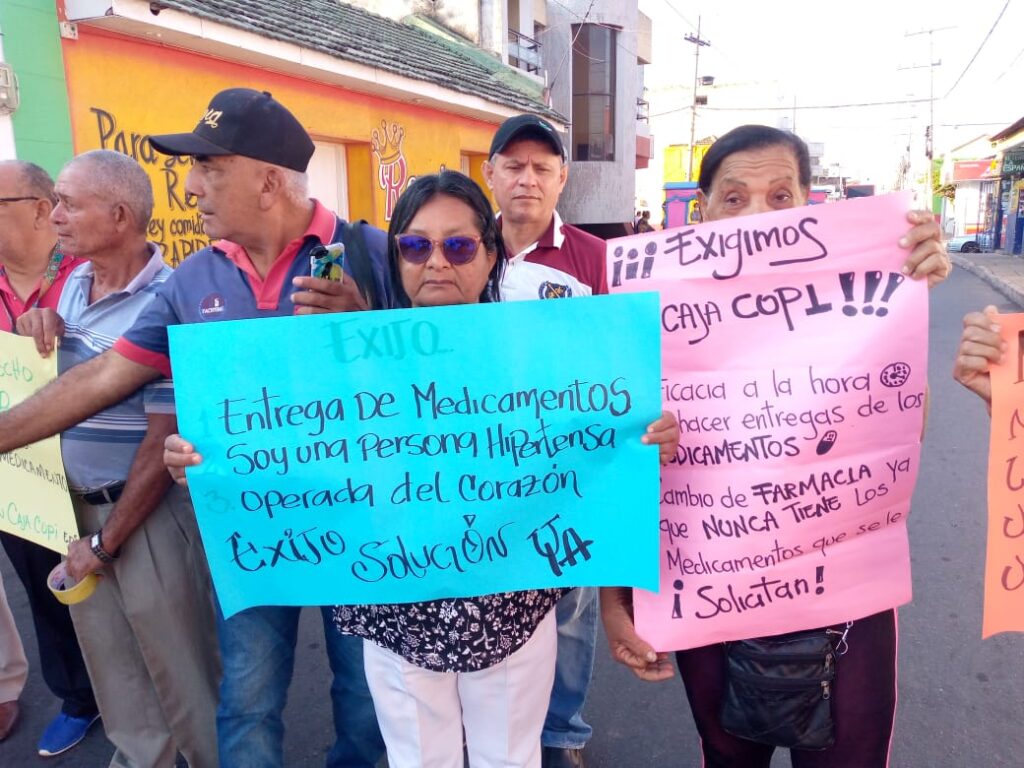 Para
Re
y comida
RAPIDA
R
CHO
MEDICAMENTO
CAJA COPI
EXIJO
Entrega De Medicamentos
Soy una Persona Hipertensa
3. operada del Corazón
Exijo Solución YA
¡¡¡ EXIGIMOS
CAJA COPI !!!
ficacia a la hora
hacer entregas de los
DICAMENTOS
ambio de FARMACIA ya
que NUNCA TIENE Los
Medicamentos que se le
¡Solicitan!
ESPAÑ